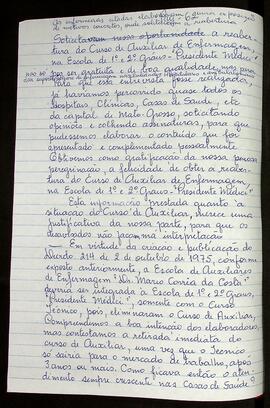 as enfermeiras citadas elaboraram o
e motivos concretos, onde a reabertura
Solicitavam nessa oportunidade a reaber-
tura do Curso de Auxiliar de Enfermagem,
na Escola de 1º e 2º Graus "Presidente Médici"
por ser gratuita e de boa qualidade,
Para que essa fosse realizada
já havíamos percorrido quase todos os
Hospitais, Clínicas, Casas de Saúde, etc
da capital de Mato Grosso, solicitando
opiniões e colhendo assinaturas, para que
pudéssemos elaborar o conteúdo que foi
apresentado e complementado pessoalmente.
Obtivemos como gratificação da nossa penosa
peregrinação, a felicidade de obter a reaber-
tura do Curso de Auxiliar de Enfermagem,
na Escola de 1º e 2º Graus "Presidente Médici".
Esta informação prestada quanto à
situação do Curso de Auxiliar, merece uma
justificativa da nossa parte, para que os
leitores não façam má interpretação
— Em virtude da criação e publicação do
Decreto 214 de 2 de outubro de 1975, conforme
exposto anteriormente, a Escola de Auxiliares
de Enfermagem "Dr. Mário Corrêa da Costa"
deveria ser integrada à Escola de 1º e 2º Graus,
"Presidente Médici", somente com o Curso
Técnico, pois, eliminaram o Curso de Auxiliar,
Compreendemos a boa intenção dos elaboradores,
mas contestamos a retirada imediata do
curso de Auxiliar, uma vez que o Técnico
só sairia para o mercado de trabalho, após
3 anos ou mais. Como ficava então o aten-
dimento sempre crescente nas Casas de Saúde?